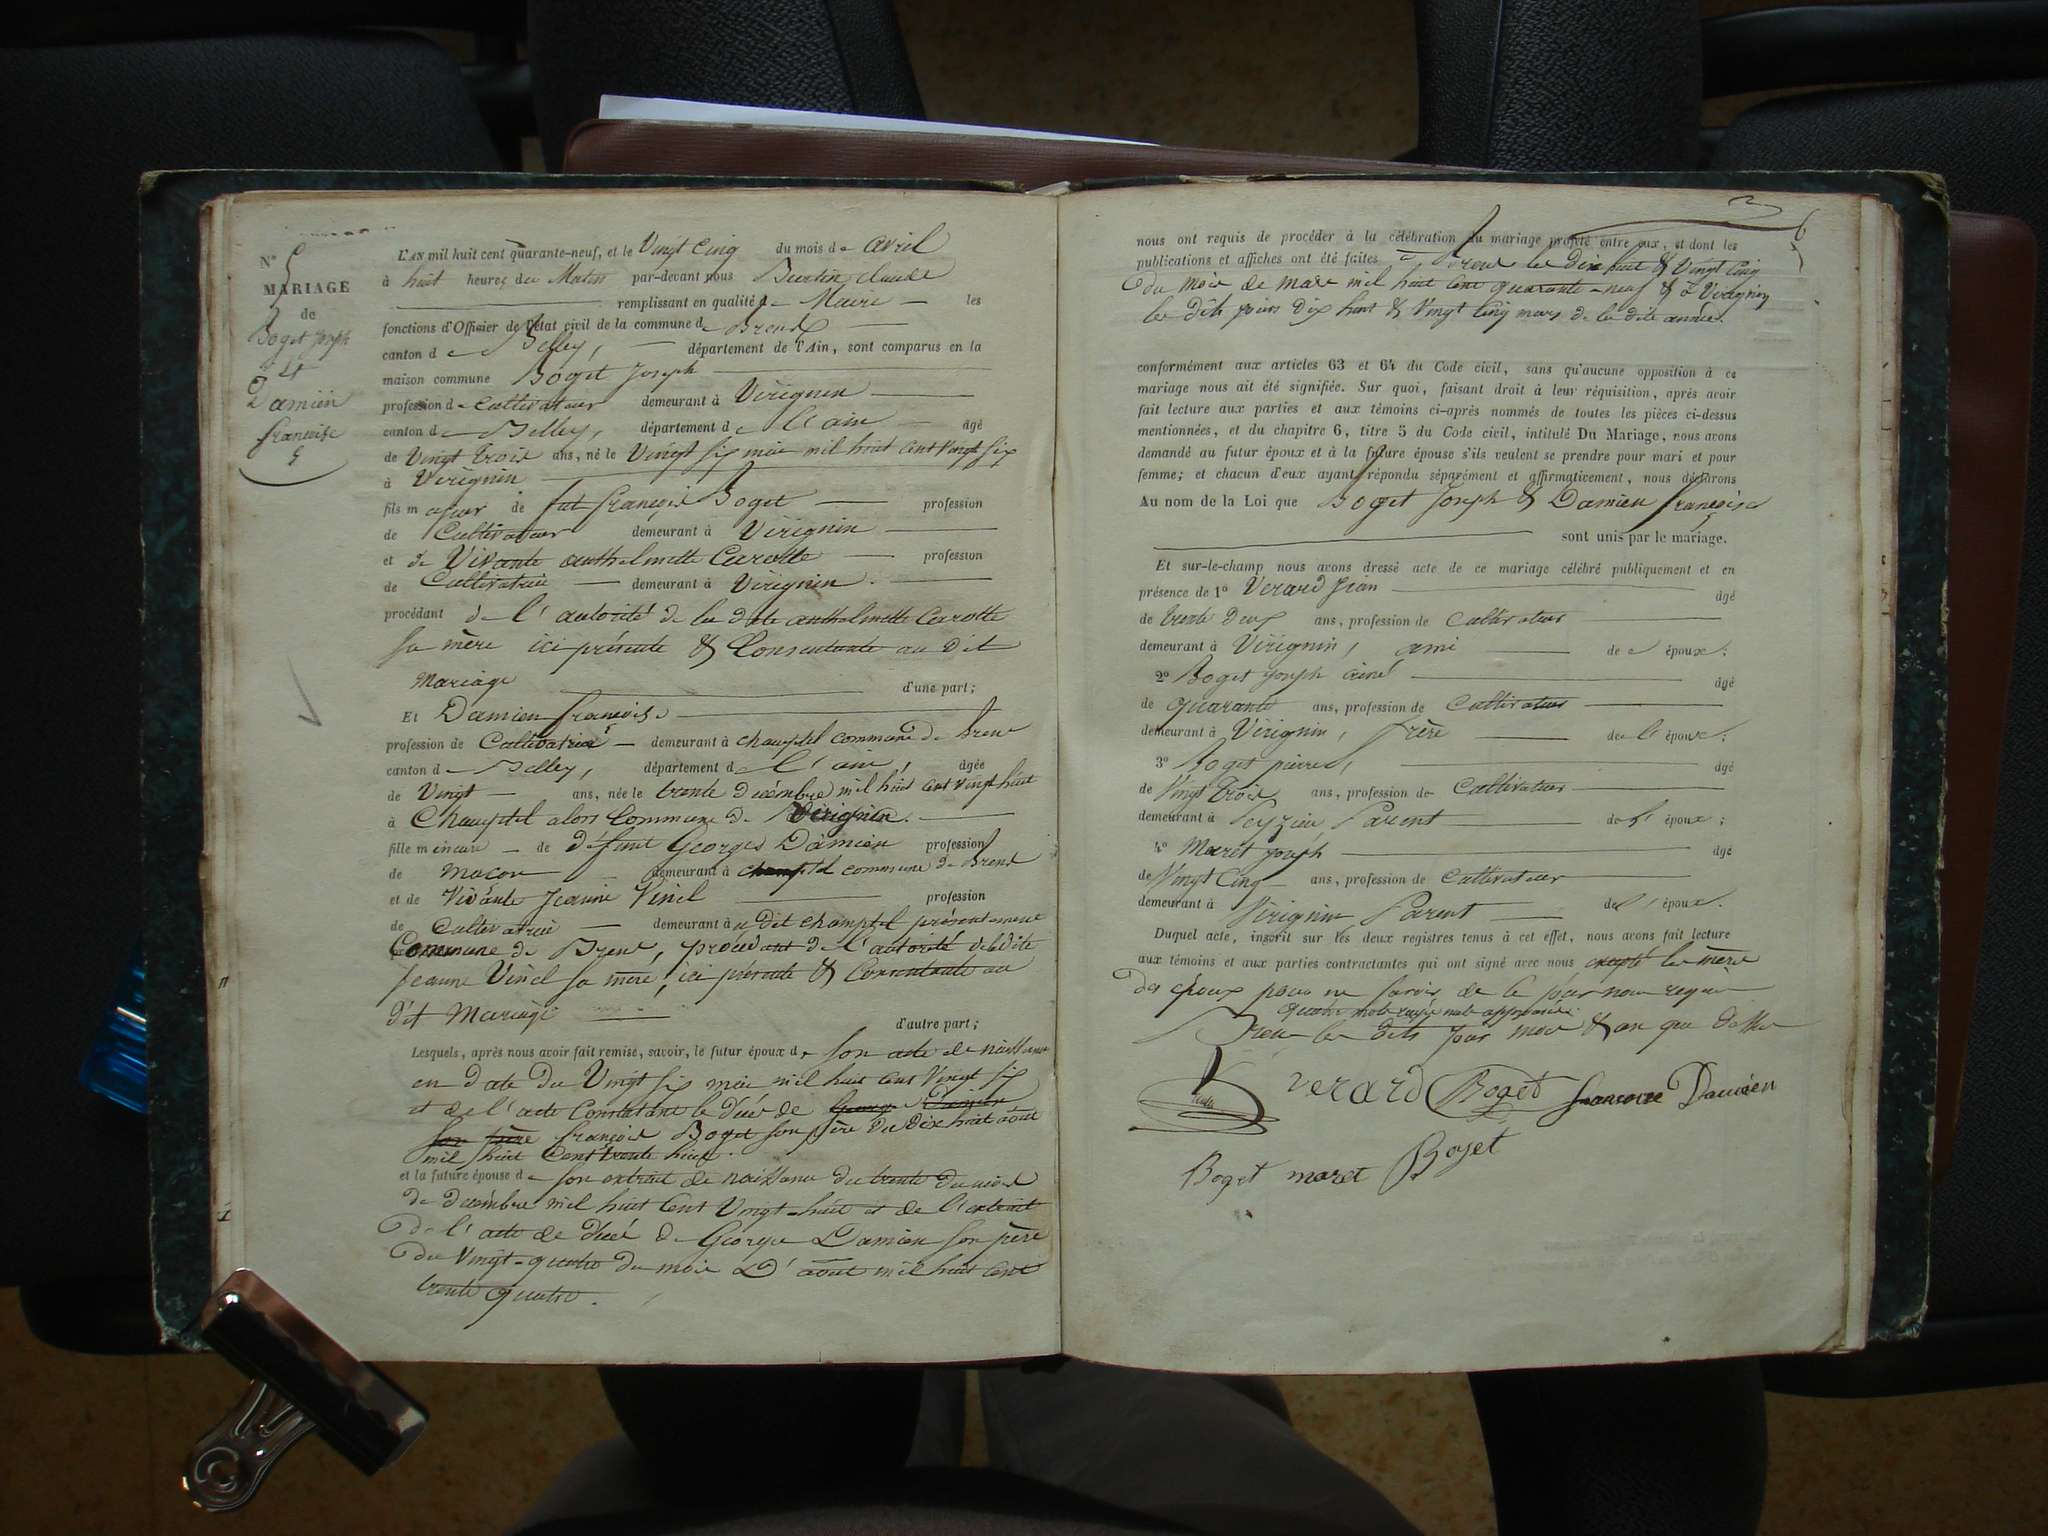 N° 5
MARIAGE
de
Boget Joseph
et
Damien
françoise
L'AN mil huit cent quarante-neuf, et le Vingt Cinq du mois de avril
à huit heures du Matin par-devant nous Burtin claude
remplissant en qualité de Maire les
fonctions d'Officier de l'état civil de la commune de Brens
canton de Belley, département de l'Ain, sont comparus en la
maison commune Boget Joseph
profession de Cultivateur demeurant à Virignin
canton de Belley, département de l'ain âgé
de Vingt trois ans, né le Vingt six mai mil huit cent Vingt six
à Virignin
fils majeur de feu françois Boget profession
de Cultivateur demeurant à Virignin
et de Vivante anthelmette Carotte profession
de Cultivatrice demeurant à Virignin
procédant de l'autorité de la dite anthelmette Carotte
sa mère ici présente & Consentante au dit
Mariage d'une part;
Et Damien françoise
profession de Cultivatrice demeurant à champtel commune de Brens
canton de Belley, département de l'ain, âgée
de Vingt ans, née le trente décembre mil huit cent vingt huit
à Champtel alors Commune de Virignin.
fille mineure de défunt Georges Damien profession
de Maçon demeurant à champtel commune de Brens
et de Vivante Jeanne Vinel profession
de Cultivatrice demeurant au dit champtel présentement
Commune de Brens, procédant de l'autorité de la dite
Jeanne Vinel sa mère, ici présente & Consentante au
dit Mariage
d'autre part;
Lesquels, après nous avoir fait remise, savoir, le futur époux de son acte de naissance
en date du Vingt six mai mil huit cent Vingt six
et de l'acte Constatant le décès de George Damien
son père françois Boget son père du dix huit août
mil huit Cent trente huit.
et la future épouse de son extrait de naissance du trente du mois
de décembre mil huit Cent Vingt-huit et de l'extrait
de l'acte de décès de George Damien son père
du Vingt-quatre du mois d'août mil huit Cent
trente quatre.
6
nous ont requis de procéder à la célébration du mariage projeté entre eux, et dont les
publications et affiches ont été faites à Brens les dix huit & Vingt Cinq
du mois de mars mil huit Cent quarante-neuf & à Virignin
les dits jours dix huit & Vingt Cinq mars de la dite année.
conformément aux articles 63 et 64 du Code civil, sans qu'aucune opposition à ce
mariage nous ait été signifiée. Sur quoi, faisant droit à leur réquisition, après avoir
fait lecture aux parties et aux témoins ci-après nommés de toutes les pièces ci-dessus
mentionnées, et du chapitre 6, titre 5 du Code civil, intitulé Du Mariage, nous avons
demandé au futur époux et à la future épouse s'ils veulent se prendre pour mari et pour
femme; et chacun d'eux ayant répondu séparément et affirmativement, nous déclarons
Au nom de la Loi que Boget Joseph & Damien françoise
sont unis par le mariage.
Et sur-le-champ nous avons dressé acte de ce mariage célébré publiquement et en
présence de 1° Verard Jean âgé
de trente deux ans, profession de Cultivateur
demeurant à Virignin, ami de l' époux;
2° Boget Joseph ainé âgé
de quarante ans, profession de Cultivateur
demeurant à Virignin, frère de l' époux;
3° Boget pierre, âgé
de Vingt trois ans, profession de Cultivateur
demeurant à Peyzieu Parent de l' époux;
4° Maret Joseph âgé
de Vingt Cinq ans, profession de Cultivateur
demeurant à Virignin Parent de l' époux.
Duquel acte, inscrit sur les deux registres tenus à cet effet, nous avons fait lecture
aux témoins et aux parties contractantes qui ont signé avec nous excepté les mères
des époux pour ne savoir de ce par nous requis
quatre mots rayés nuls approuvés
Brens les dits jour mois & an que dessus
Verard Boget francoise Damien
Boget maret Boget